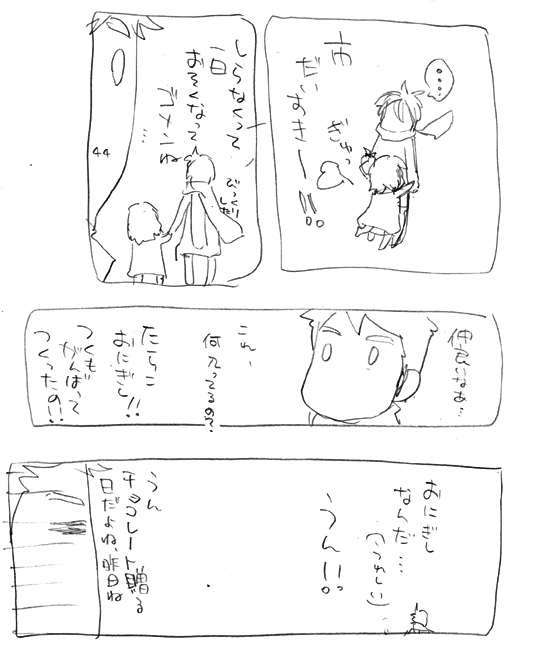 …
市
だいすきー!!。
ぎゅっ
しらなくって
一日
おそくなって
ゴメンね
…
びっくりした
44
仲良いなあ…
これ、
何入ってるの?
たらこ
おにぎし!!
つくも
がんばって
つくったの!!
おにぎし
なんだ…
(うれしい)
うん!!。
うん
チョコレート贈る
日だよね、昨日ね